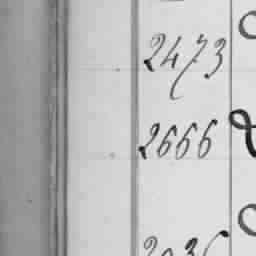 2473
2666